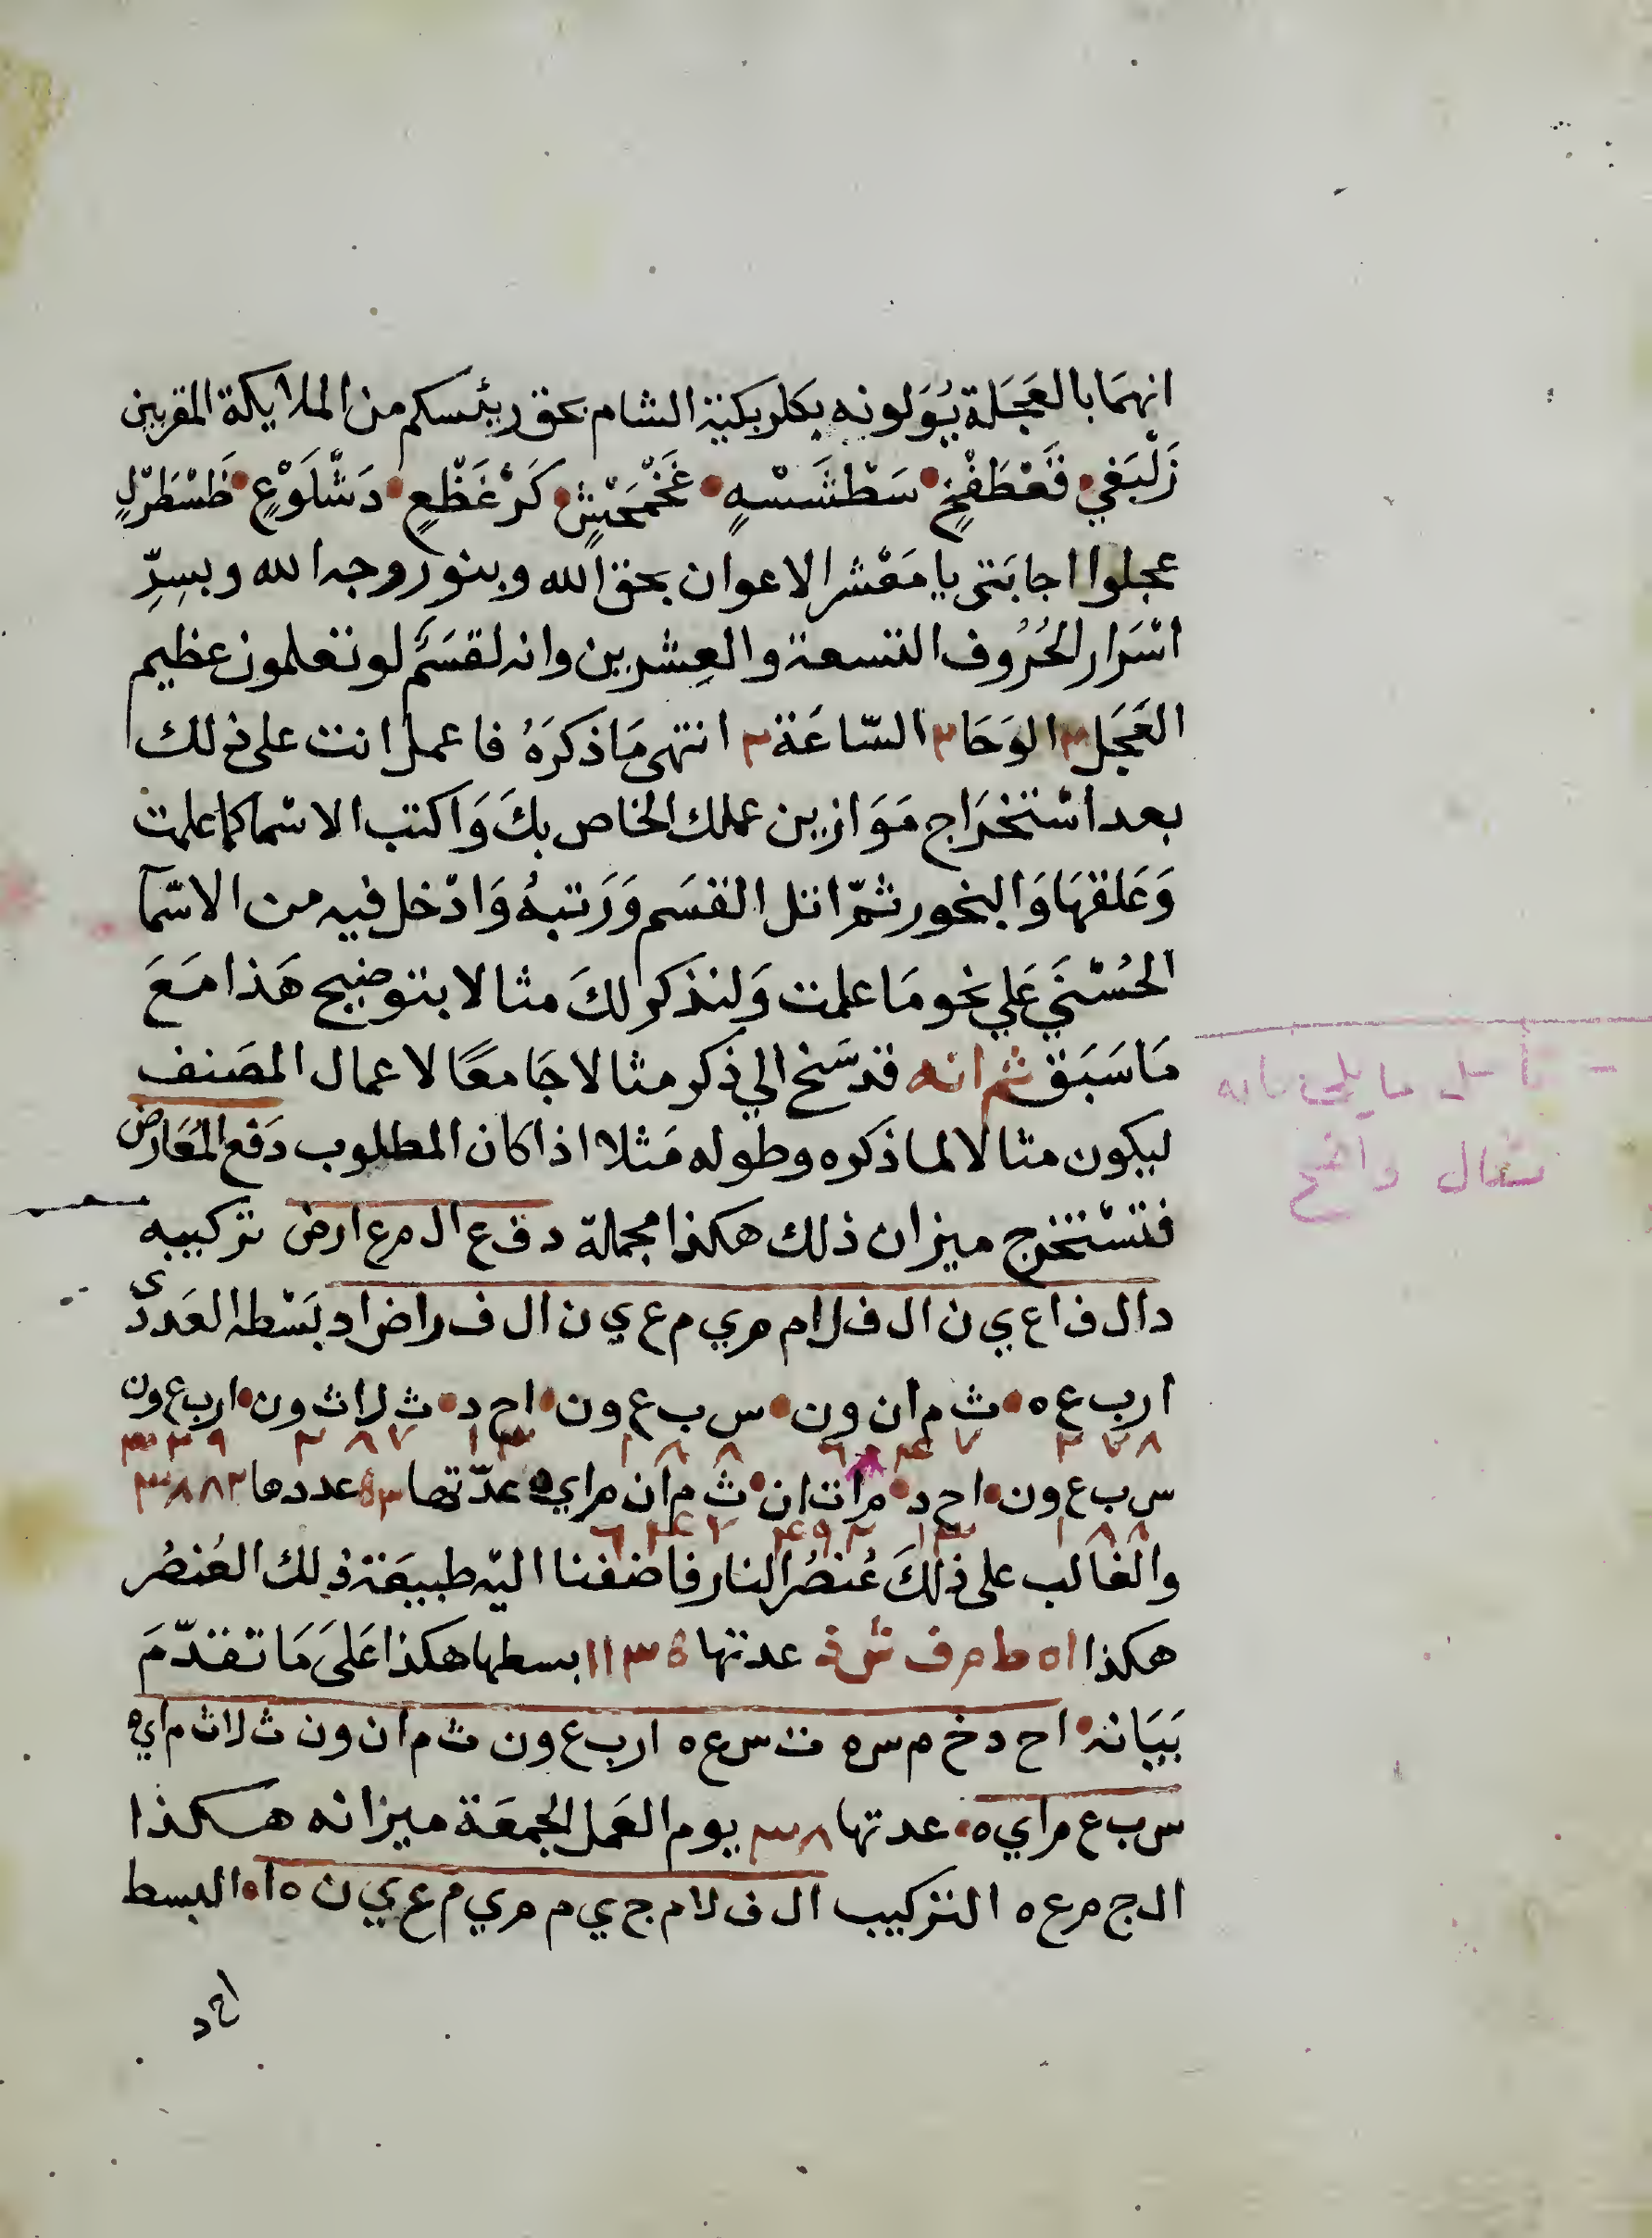 انهمَا بالعَجَلة يُوَلونه بكلربكية الشام بحق ريئسكم من الملايكة المقربين
زَلْبَغيٍ فَعْطَفْخٍ سَطْشَسْهٍ غَخْمَحْشٍ كَرْغَظْعٍ دَشْلَوْعٍ ظَسْطَرْلٍ
عجلوا اجابَتى يا مَعْشر الاعوان بحق الله وبنور وجه الله وبسِرِّ
اسْرَار الحُرُوف التسعة والعِشرين وانه لقسَمٌ لو تعلمون عظيم
العَجَل ٣ الوَحَا ٣ السّاعَة ٣ انتهى مَا ذكرَهُ فاعمل انت على ذلك
بعد اسْتخْرَاج مَوَازين عملك الخاص بكَ وَاكتب الاسْما كما علمت
وَعَلقهَا وَالبخور ثمّ اتل القسَم وَرَتبهُ وَادْخل فيه من الاسْمآ
الحُسْنَي عَلي نحو مَا علمت وَلنذكر لكَ مثالا بتوضيح هَذا مَعَ
مَا سَبَق ثم انه قد سَنح الي ذكر مثالا جَامعًا لاعمال المصَنف
ليكون مثالا لما ذكره وطوله مَثلا اذا كان المطلوب دَفع المُعَارض
فتسْتخرج ميزان ذلك هكذا مجملة د ف ع ا ل م ع ا ر ض تركيبه
د ا ل ف ا ع ي ن ا ل ف ل ا م م ي م ع ي ن ا ل ف ر ا ض ا د بَسْطه العَددى
ا ر ب ع ه ث م ا ن و ن س ب ع و ن ا ح د ث ل ا ث و ن ا ر ب ع و ن
س ب ع و ن ا ح د م ا ت ا ن ث م ا ن م ا ي ه عدّتها ٥٣ عددها ٣٨٨٢
والغالب على ذلكَ عُنصُر النار فاضفنا اليْه طبيعَة ذلك العُنصُر
هكذا ا ه ط م ف ش ذ عدتها ١١٣٥ بسطها هكذا عَلىَ مَا تقدّمَ
بَيَانه ا ح د خ م س ه ت س ع ه ا ر ب ع و ن ث م ا ن و ن ث ل ا ث م ا ي ه
س ب ع م ا ي ه عدتها ٣٨ يوم العَمل الجمعَة ميزانه هكذا
ا ل ج م ع ه التركيب ا ل ف ل ا م ج ي م م ي م ع ي ن ه ا البسط
احد
مثال واضح